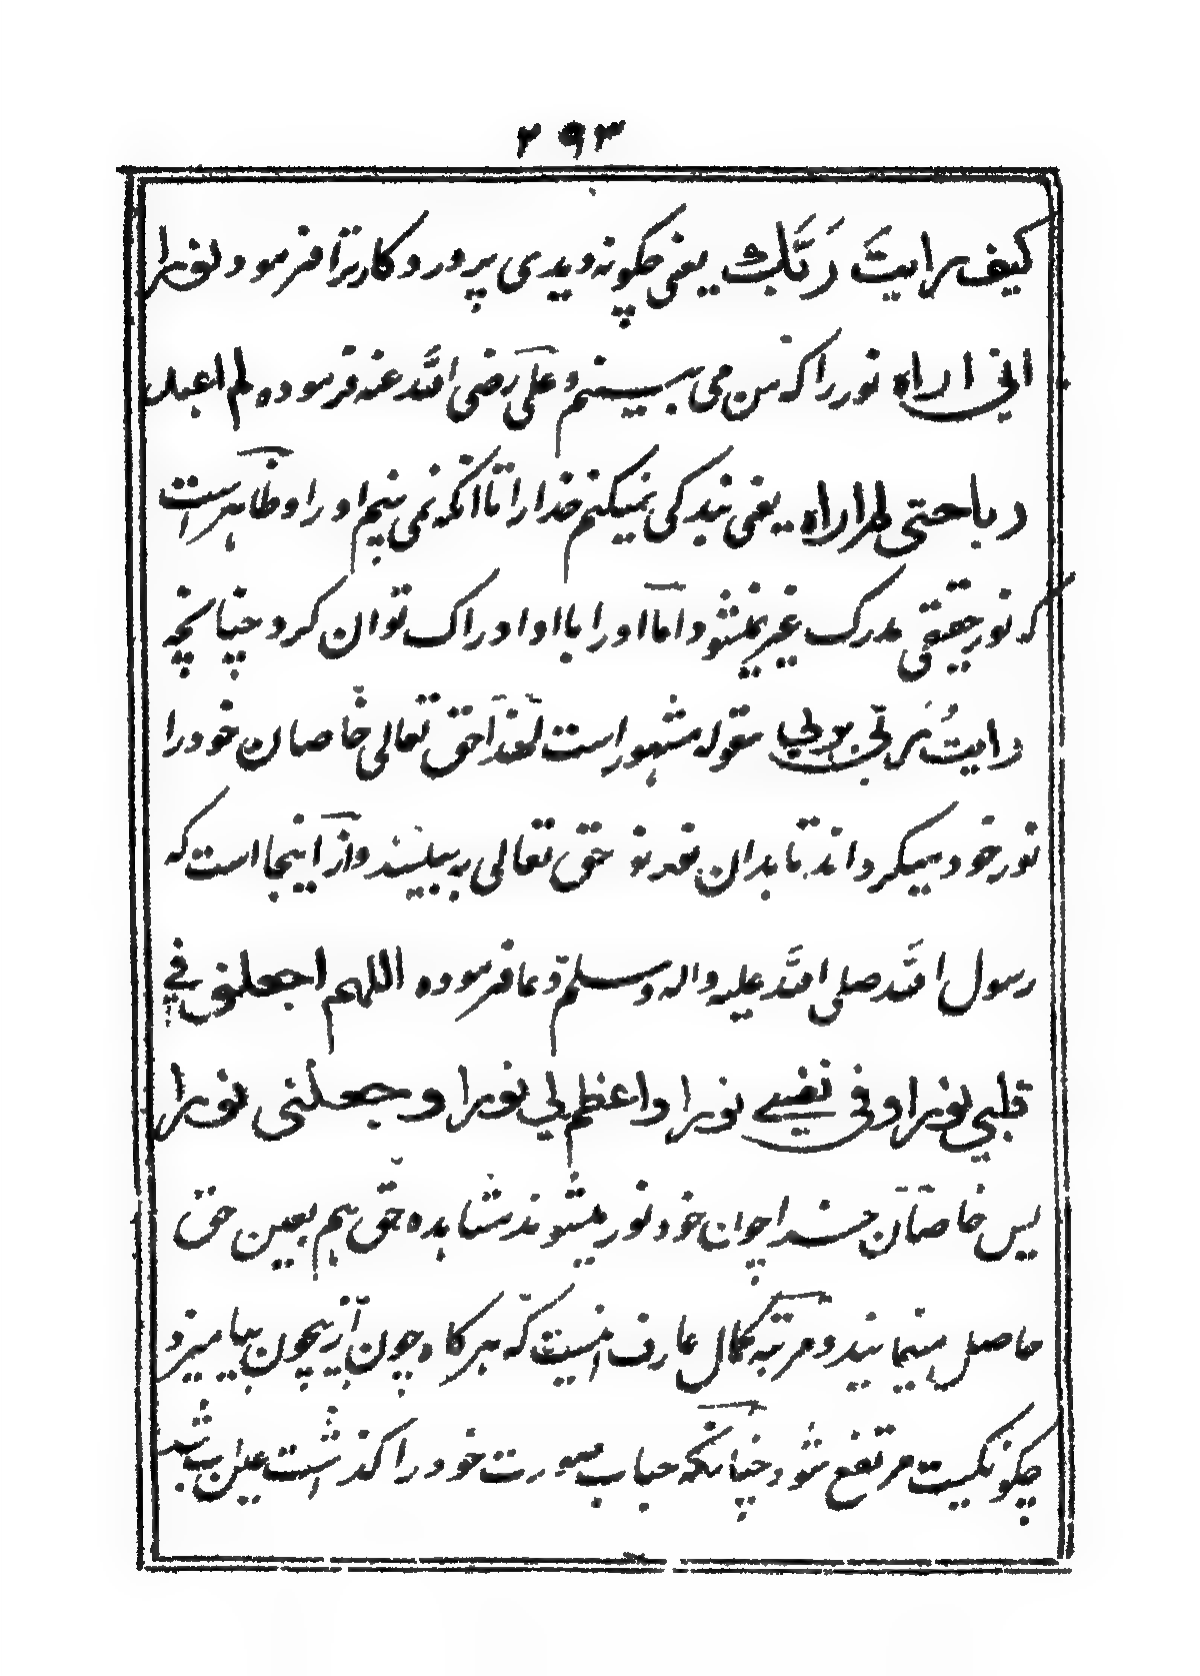 ۲۹۳
کیف رایتَ رَبَّكَ یعنی چکونه دیدی پروردکار ترا فرمود نورا
انی اراه نور را که من می بینم و علی رضی الله عنه فرموده لم اعبد
ربا حتی لم اراه یعنی بندکی نمیکنم خدا را تا آنکه نمی بینم او را و ظاهر است
که نور حقیقی مدرک غیر نمیشود اما او را با او ادراک توان کرد چنانچه
رایتُ رَبّی بربی مقوله مشهور است لهذا حق تعالی خاصان خود را
نور خود میکرداند تا بدان نور نور حق تعالی به بینند و از اینجا است که
رسول الله صلی الله علیه واله وسلم دعا فرموده اللهم اجعلنی فی
قلبی نورا و فی نفسی نورا واعظم لی نورا وجعلنی نورا
پس خاصان خدا چون خود نور میشوند مشاهده حق هم بعین حق
حاصل مینمایند و مرتبه کمال عارف اینست که هر کاه چون از بیچون بیامیزد
چکونکیست مرتفع شود چنانکه حباب صورت خود را کذشت عین آب شد